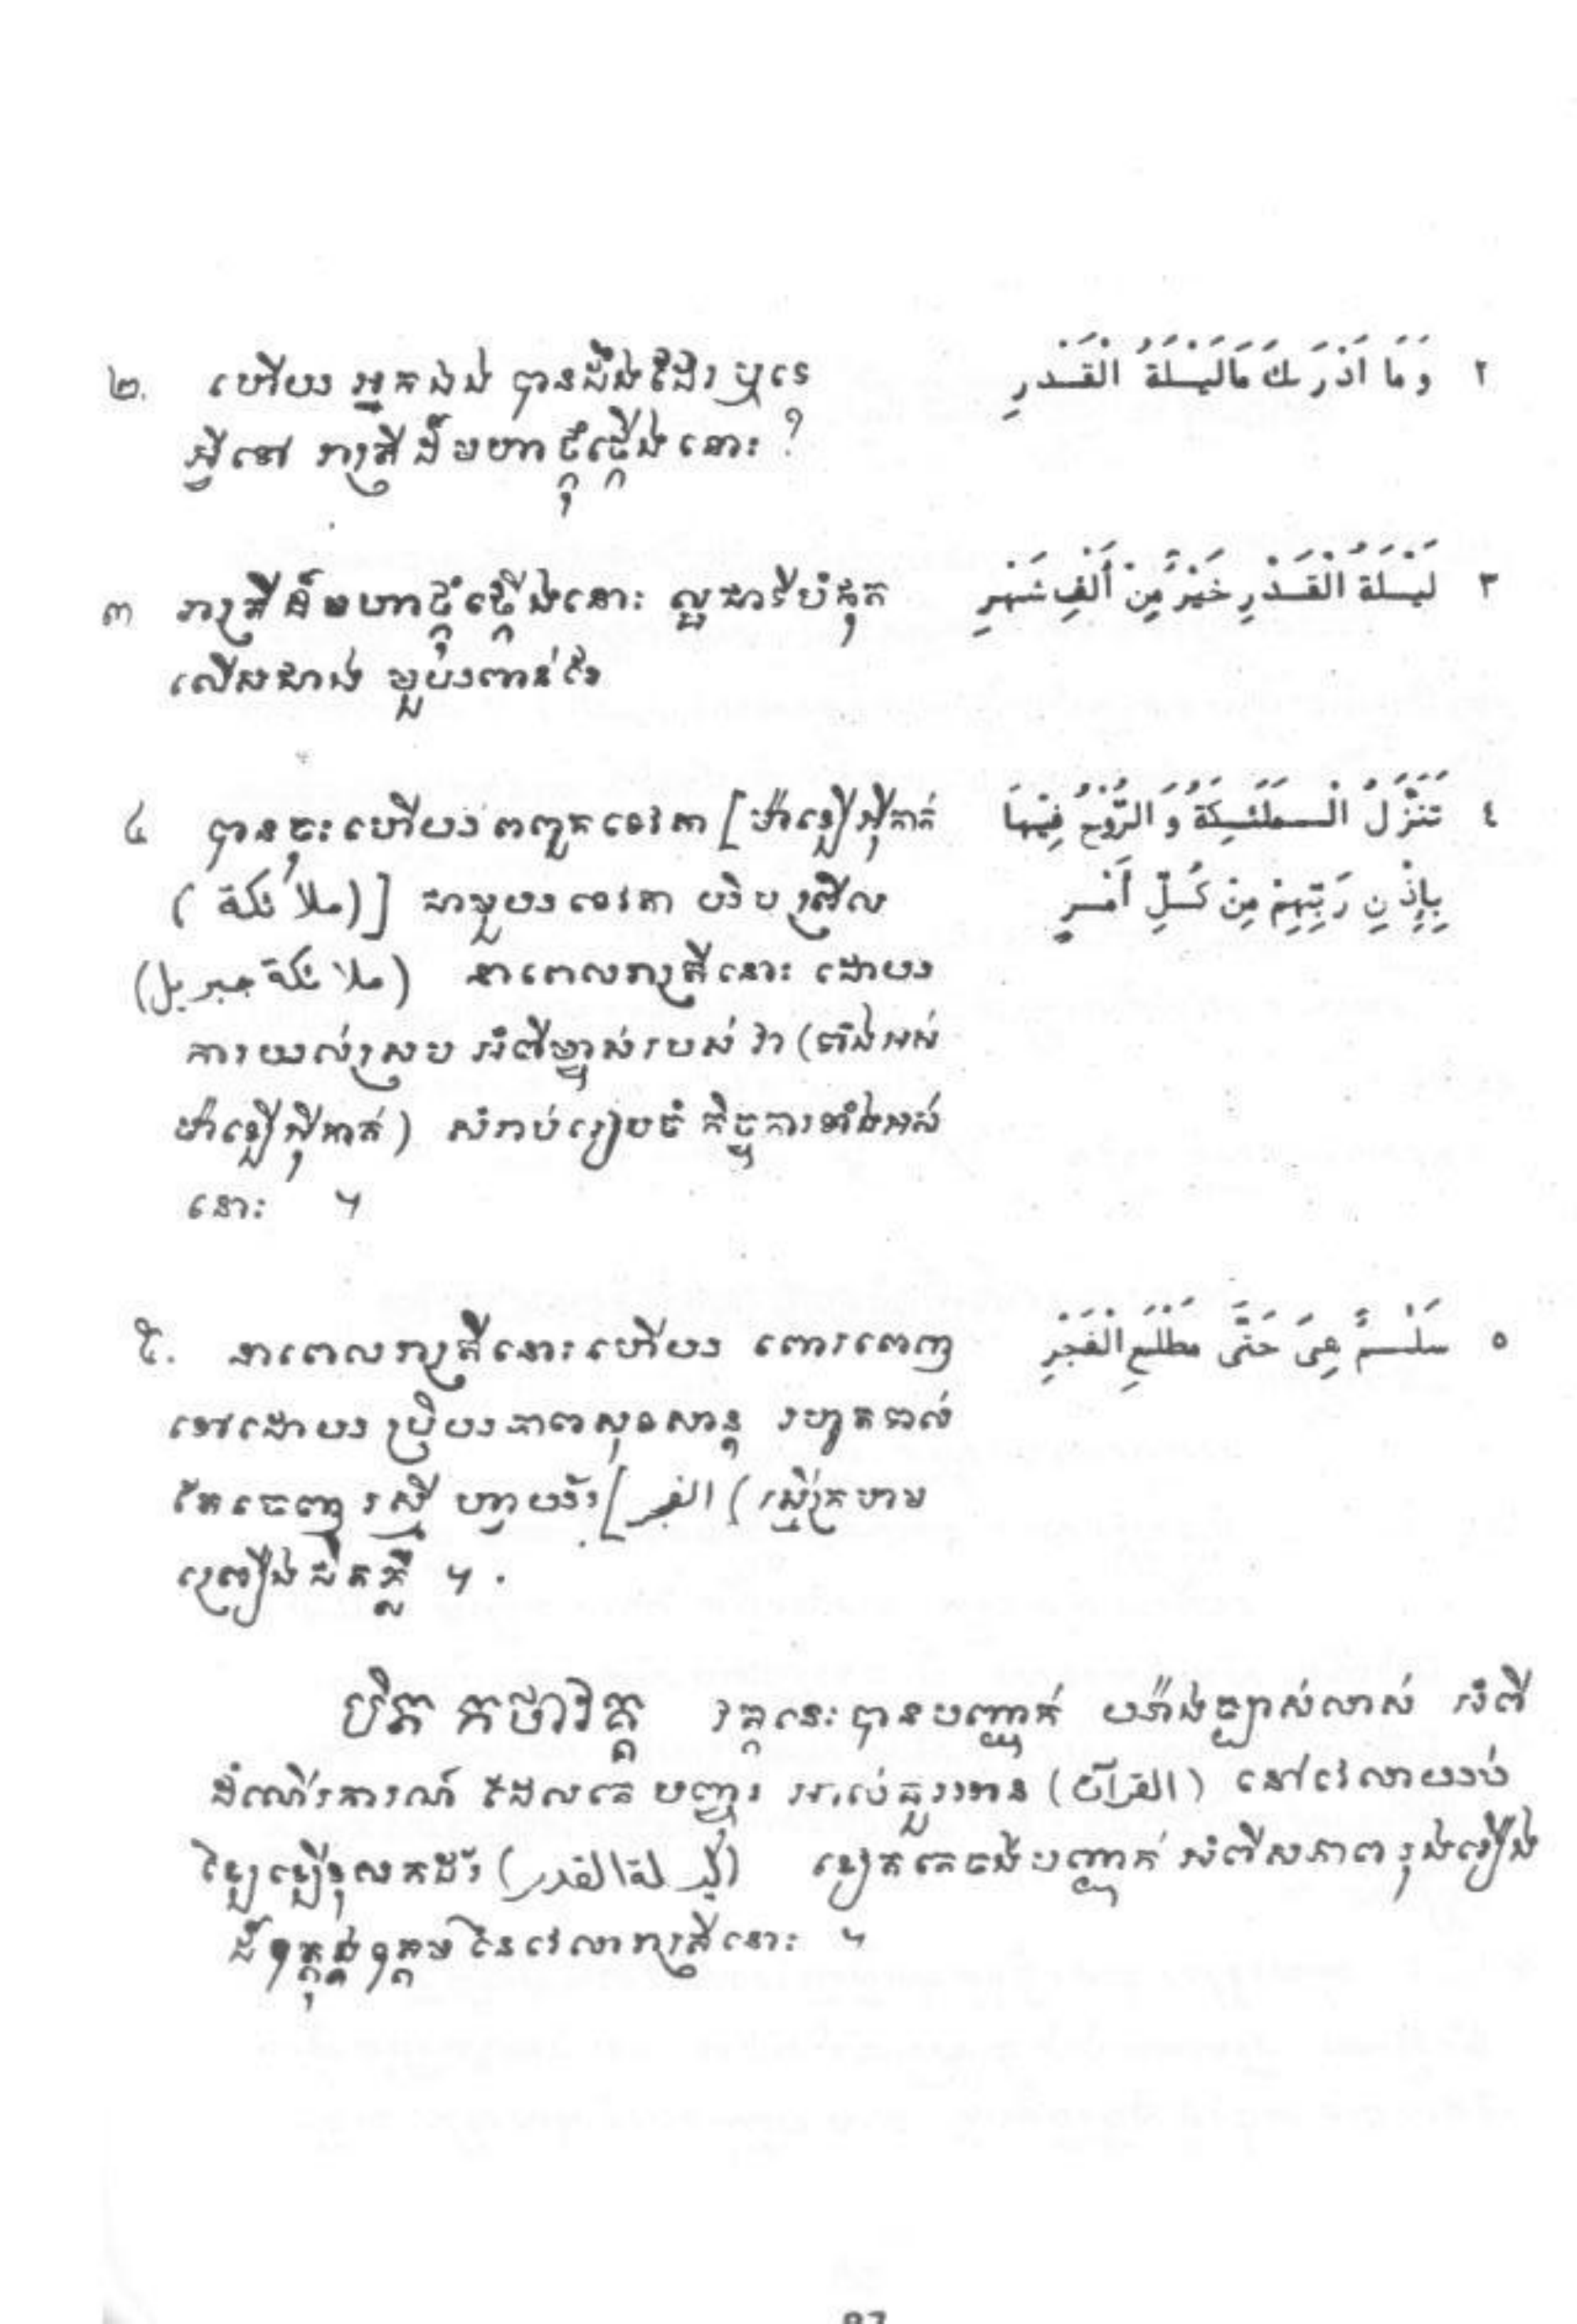 ២. ហើយ អ្នកឯង បានដឹងដែរ ឬទេ
អ្វីទៅ រាត្រីដ៏មហាថ្កុំថ្កើងនោះ ?
٢ وَمَا اَدْرَىكَ مَالَيْلَةُ الْقَدْرِ
៣ រាត្រីដ៏មហាថ្កុំថ្កើងនោះ ល្អជាទីបំផុត
លើសជាង មួយពាន់ខែ
٣ لَيْلَةُ الْقَدْرِ خَيْرٌ مِّنْ اَلْفِ شَهْرٍ
៤ បានចុះហើយ ពពួកទេវតា [ម៉ាឡើអ៊ីកាត់
(ملائكة)] ជាមួយទេវតា យិបរ៉ើល
(ملائكة جبريل) នាពេលរាត្រីនោះ ដោយ
ការយល់ស្រប អំពីម្ចាស់របស់ វា (ទាំងអស់
ម៉ាឡើអ៊ីកាត់) សំរាប់រៀបចំ កិច្ចការទាំងអស់
នោះ ៕
٤ تَنَزَّلُ الْمَلٰئِكَةُ وَالرُّوْحُ فِيْهَا
بِاِذْنِ رَبِّهِمْ مِنْ كُلِّ اَمْرٍ
៥. នាពេលរាត្រីនោះហើយ ពោរពេញ
ទៅដោយ ប្រិយភាពសុខសាន្ត រហូតទាល់
តែចេញ រស្មី ហ្វាយ៉រ [الفجر (រស្មីក្រហម
ព្រឿងជិតភ្លឺ ៕.
٥ سَلٰمٌ هِىَ حَتّٰى مَطْلَعِ الْفَجْرِ
បិត កថាវគ្គ វគ្គនេះបានបញ្ជាក់ យ៉ាងច្បាស់លាស់ អំពី
ដំណើរការណ៍ ដែលគេ បញ្ចុះ អាល់គួរអាន (القرآن) នៅវេលាយប់
ឡៃឡើតុលកដ័រ (ليلة القدر) ទៀតគេចង់បញ្ជាក់ អំពីសភាព រុងរឿង
ដ៏ឧត្តុង្គឧត្តម នៃវេលារាត្រីនោះ ៕